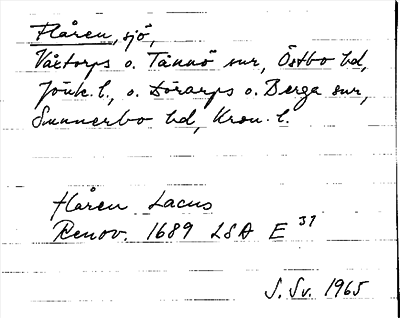 Flåren, sjö,
Våxtorps o. Tånnö snr, Östbo hd,
Jönk. l., o. Dörarps o. Berga snr,
Sunnerbo hd, Kron. l.
Flåren Lacus
Renov. 1689 LSA E 37
S. Sv. 1965